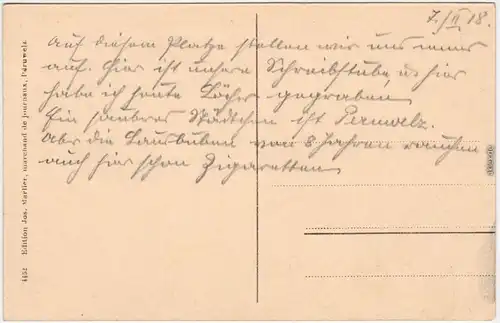 7./II 18.
Auf diesem Platze stellen wir uns immer
auf. Hier ist unsere Schreibstube, u. hier
habe ich heute Löcher gegraben.
Ein sauberes Städtchen ist Peruwelz.
Aber die Lausbuben von 8 Jahren rauchen
auch hier schon Zigaretten.
4452 Edition Jos. Marlier, marchand de journaux, Péruwelz